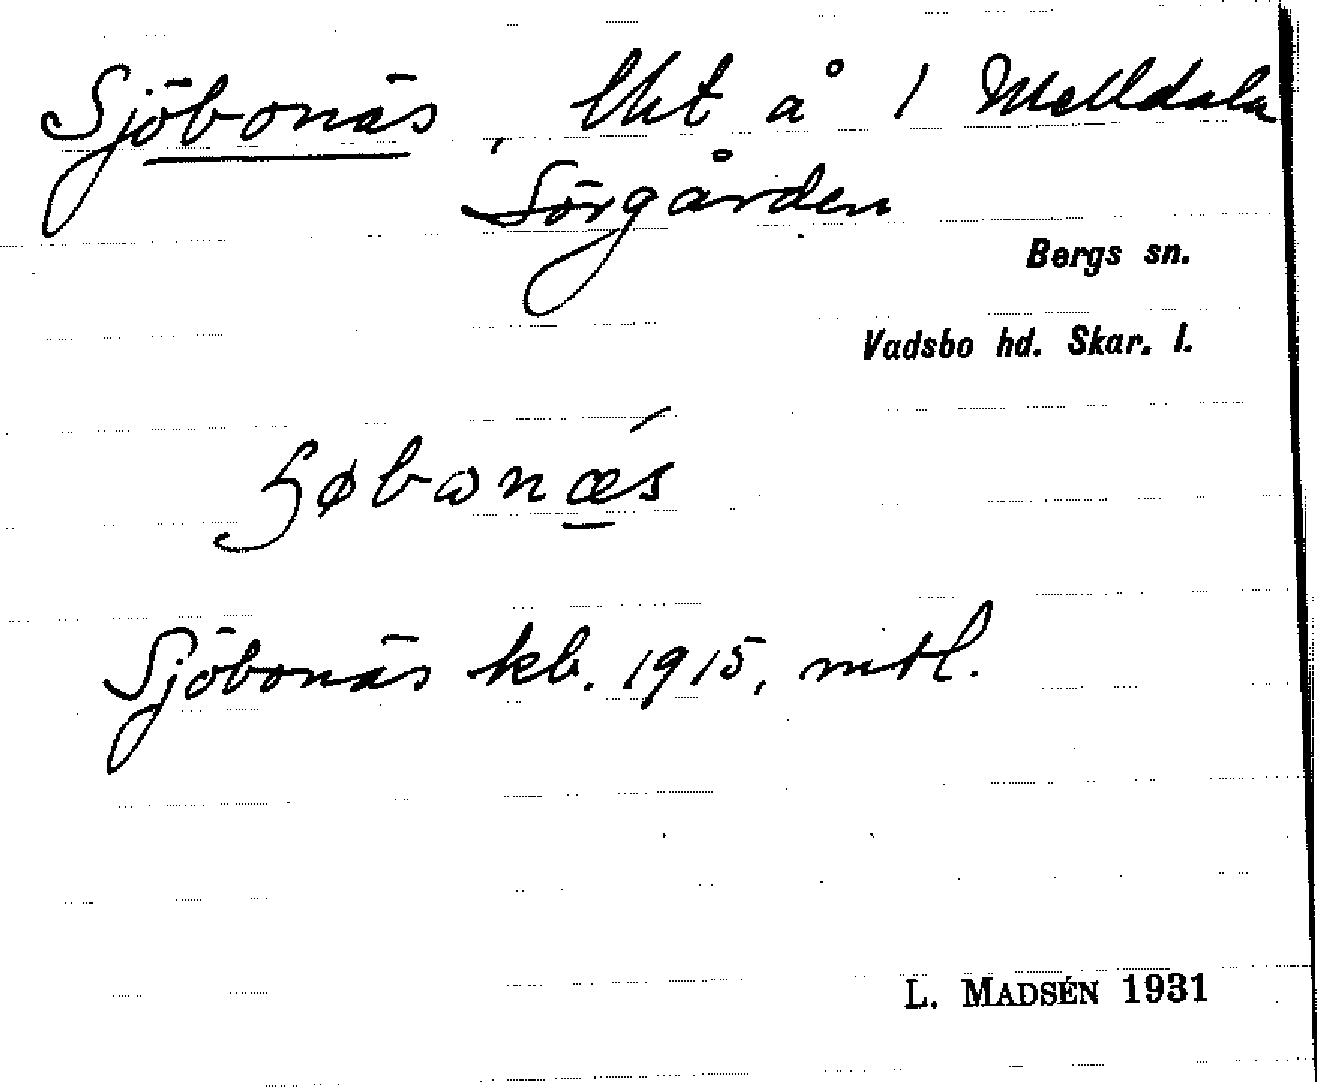 Sjöbonäs, lht å 1 Melldala
Sörgården
Bergs sn.
Vadsbo hd. Skar. l.
Sjöbonäs kb. 1915, mtl.
L. MADSÉN 1931